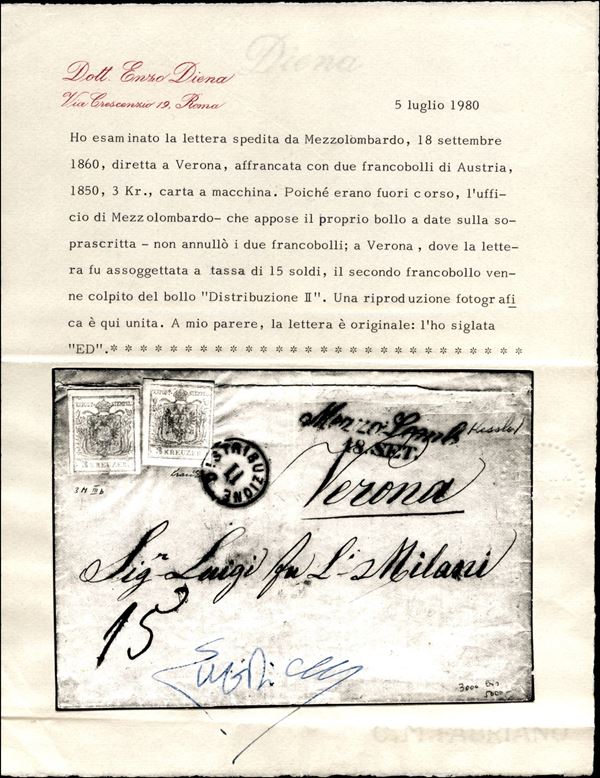 Diena
Dott. Enzo Diena
Via Crescenzio 19, Roma
5 luglio 1980
Ho esaminato la lettera spedita da Mezzolombardo, 18 settembre
1860, diretta a Verona, affrancata con due francobolli di Austria,
1850, 3 Kr., carta a macchina. Poiché erano fuori corso, l'uffi-
cio di Mezzolombardo- che appose il proprio bollo a date sulla so-
prascritta - non annullò i due francobolli; a Verona, dove la lette-
ra fu assoggettata a tassa di 15 soldi, il secondo francobollo ven-
ne colpito del bollo "Distribuzione II". Una riproduzione fotografi
ca è qui unita. A mio parere, la lettera è originale: l'ho siglata
"ED".* * * * * * * * * * * * * * * * * * * * * * * * * * * * *
3 KREUZER
3 KREUZER
DISTRIBUZIONE
II
Mezzo-Lomb.
18. SET.
Verona
3 H III b
Sigr. Luigi fu L. Milani
15
3000
5000
C.M. FABRIANO